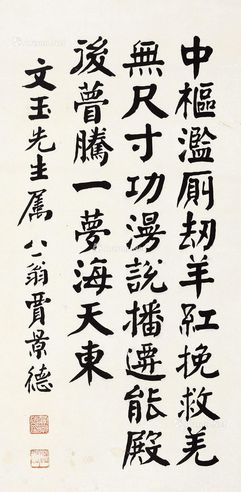 中樞濫厠刼羊紅挽救羌
無尺寸功漫說播遷能殿
後瞢騰一夢海天東
文玉先生属 八一翁賈景德